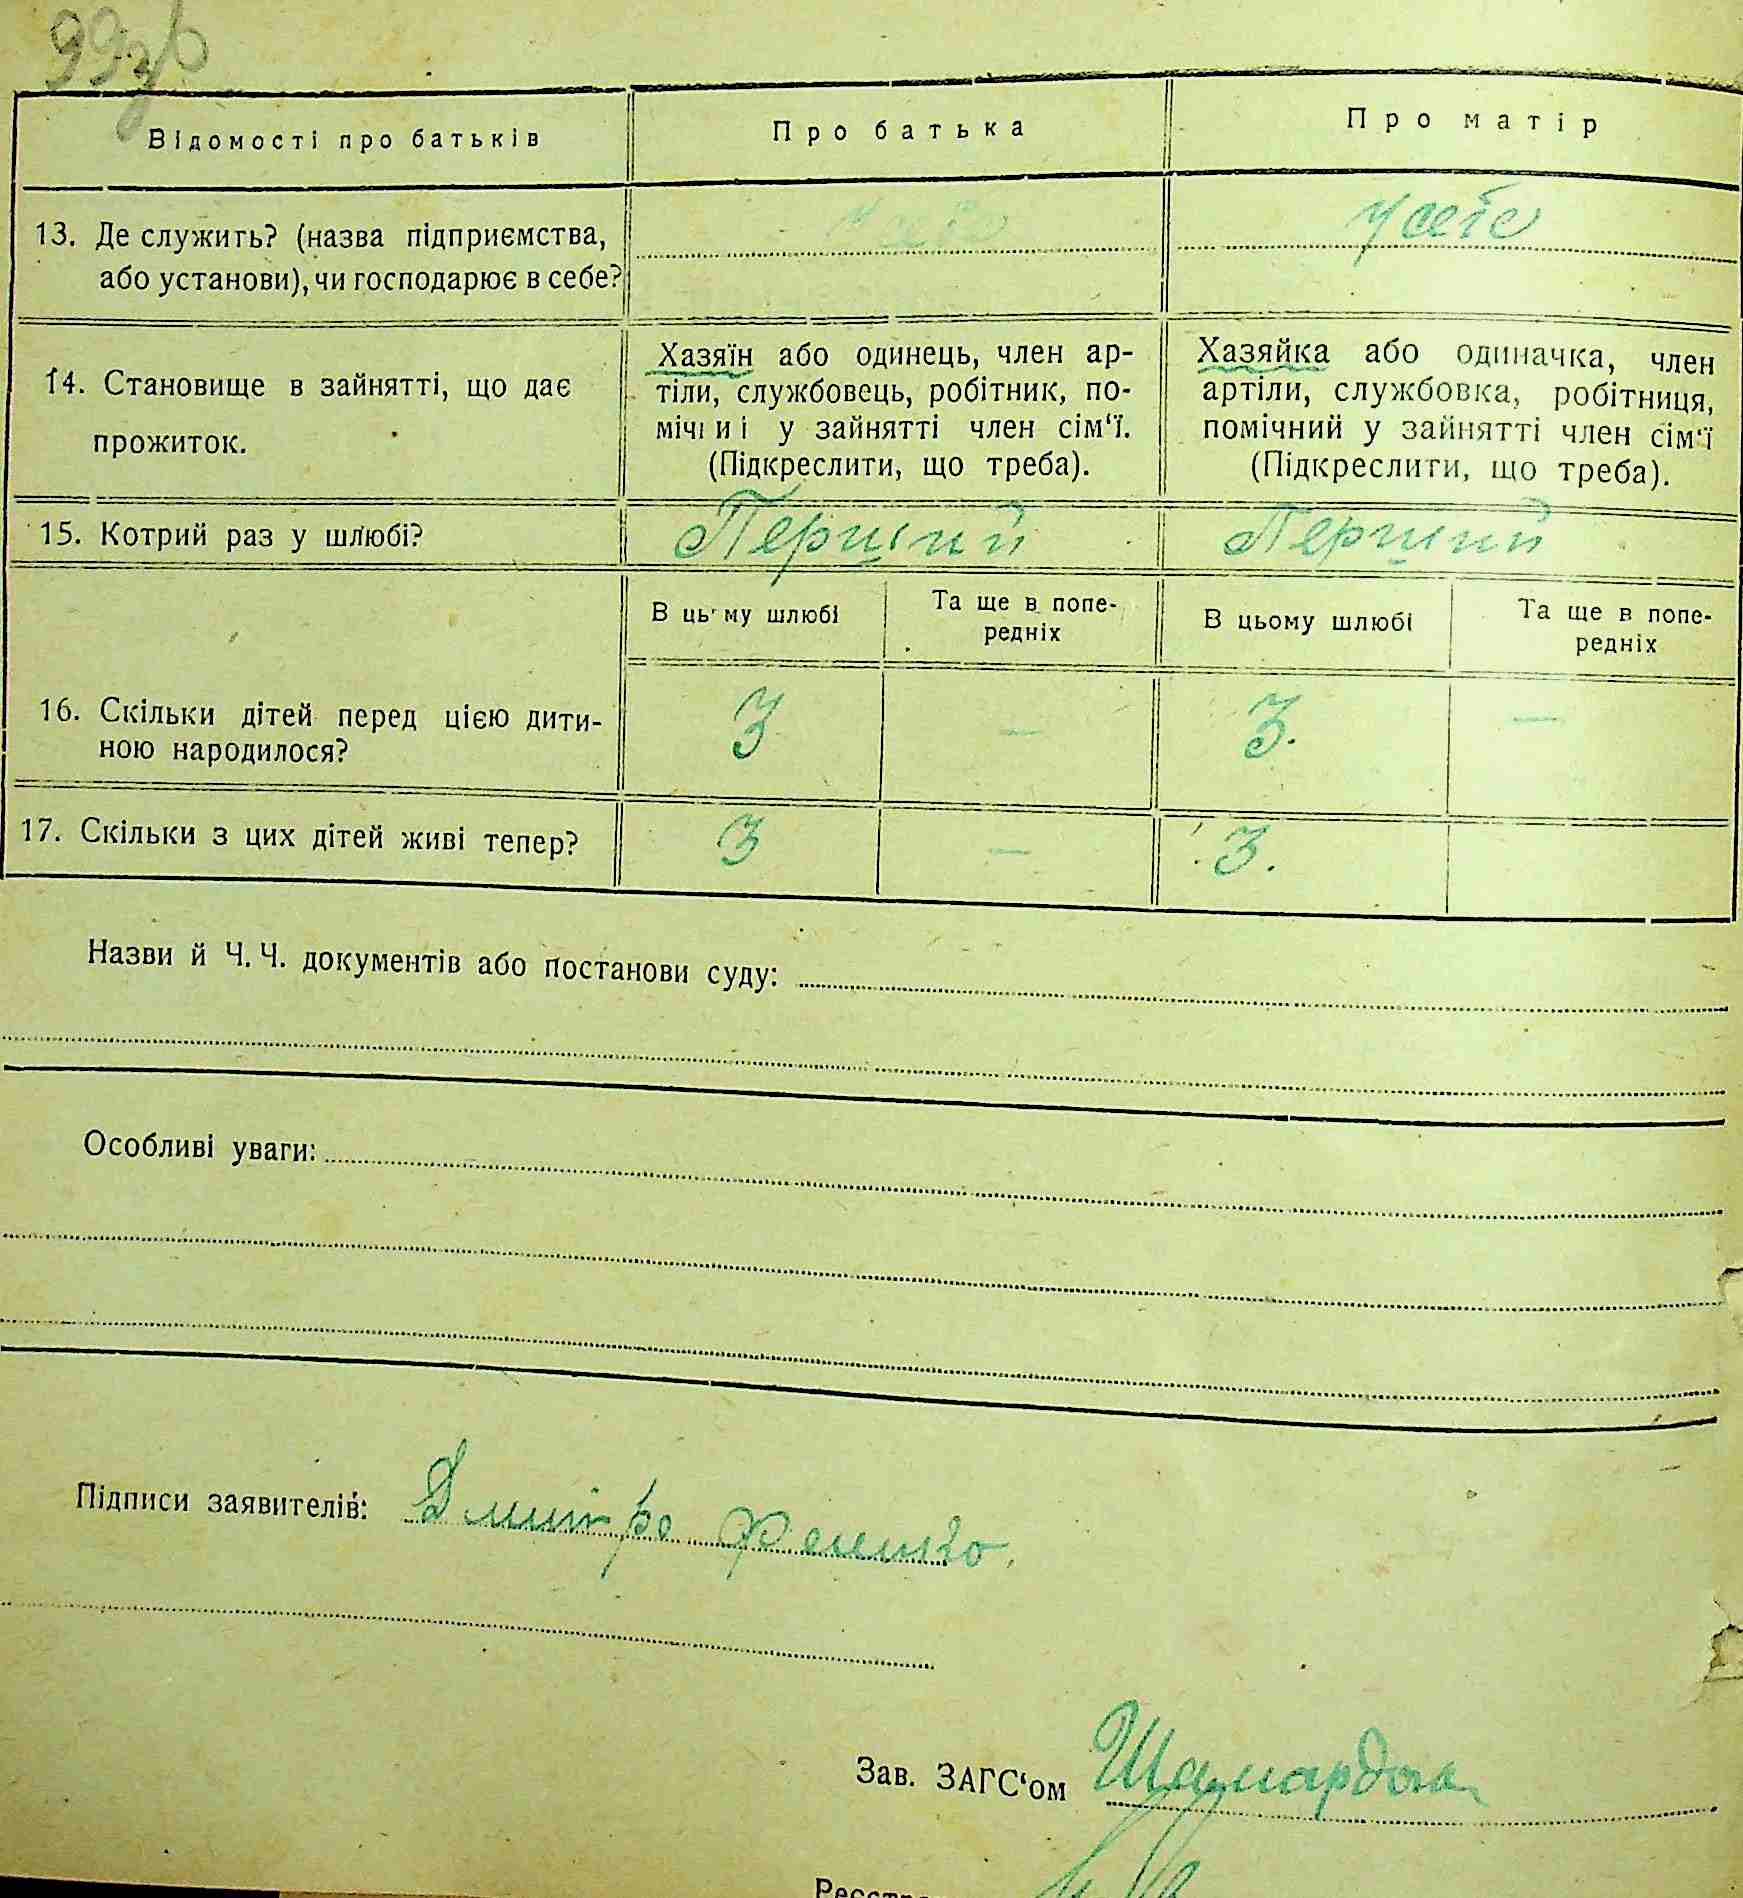 99зв
Відомості про батьків
Про батька
Про матір
13. Де служить? (назва підприємства,
або установи), чи господарює в себе?
у себе
у себе
14. Становище в зайнятті, що дає
прожиток.
Хазяїн або одинець, член ар-
тіли, службовець, робітник, по-
мічниі у зайнятті член сім‘ї.
(Підкреслити, що треба).
Хазяйка або одиначка, член
артіли, службовка, робітниця,
помічний у зайнятті член сім‘ї
(Підкреслити, що треба).
15. Котрий раз у шлюбі?
Перший
Перший
В цьму шлюбі
Та ще в попе-
редніх
В цьому шлюбі
Та ще в попе-
редніх
16. Скільки дітей перед цією дити-
ною народилося?
3
—
3.
—
17. Скільки з цих дітей живі тепер?
3
—
3.
Назви й Ч. Ч. документів або постанови суду:
Особливі уваги:
Підписи заявителів: Дмитро
Зав. ЗАГС‘ом Шамардак